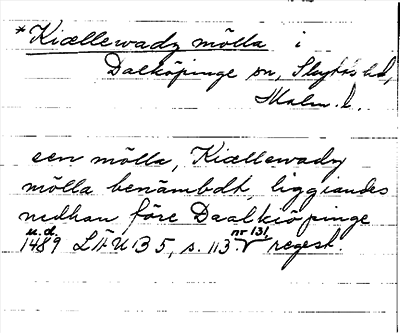 *Kiællewady mölla i
Dalköpinge sn, Skytts hd,
Malm. l.
een mölla, Kiællewady
mölla benämbdt, liggiandes
nedhan före Daalkiöpinge
u.d.
1489 LÄUB 5, s. 113. nr 131, regest.